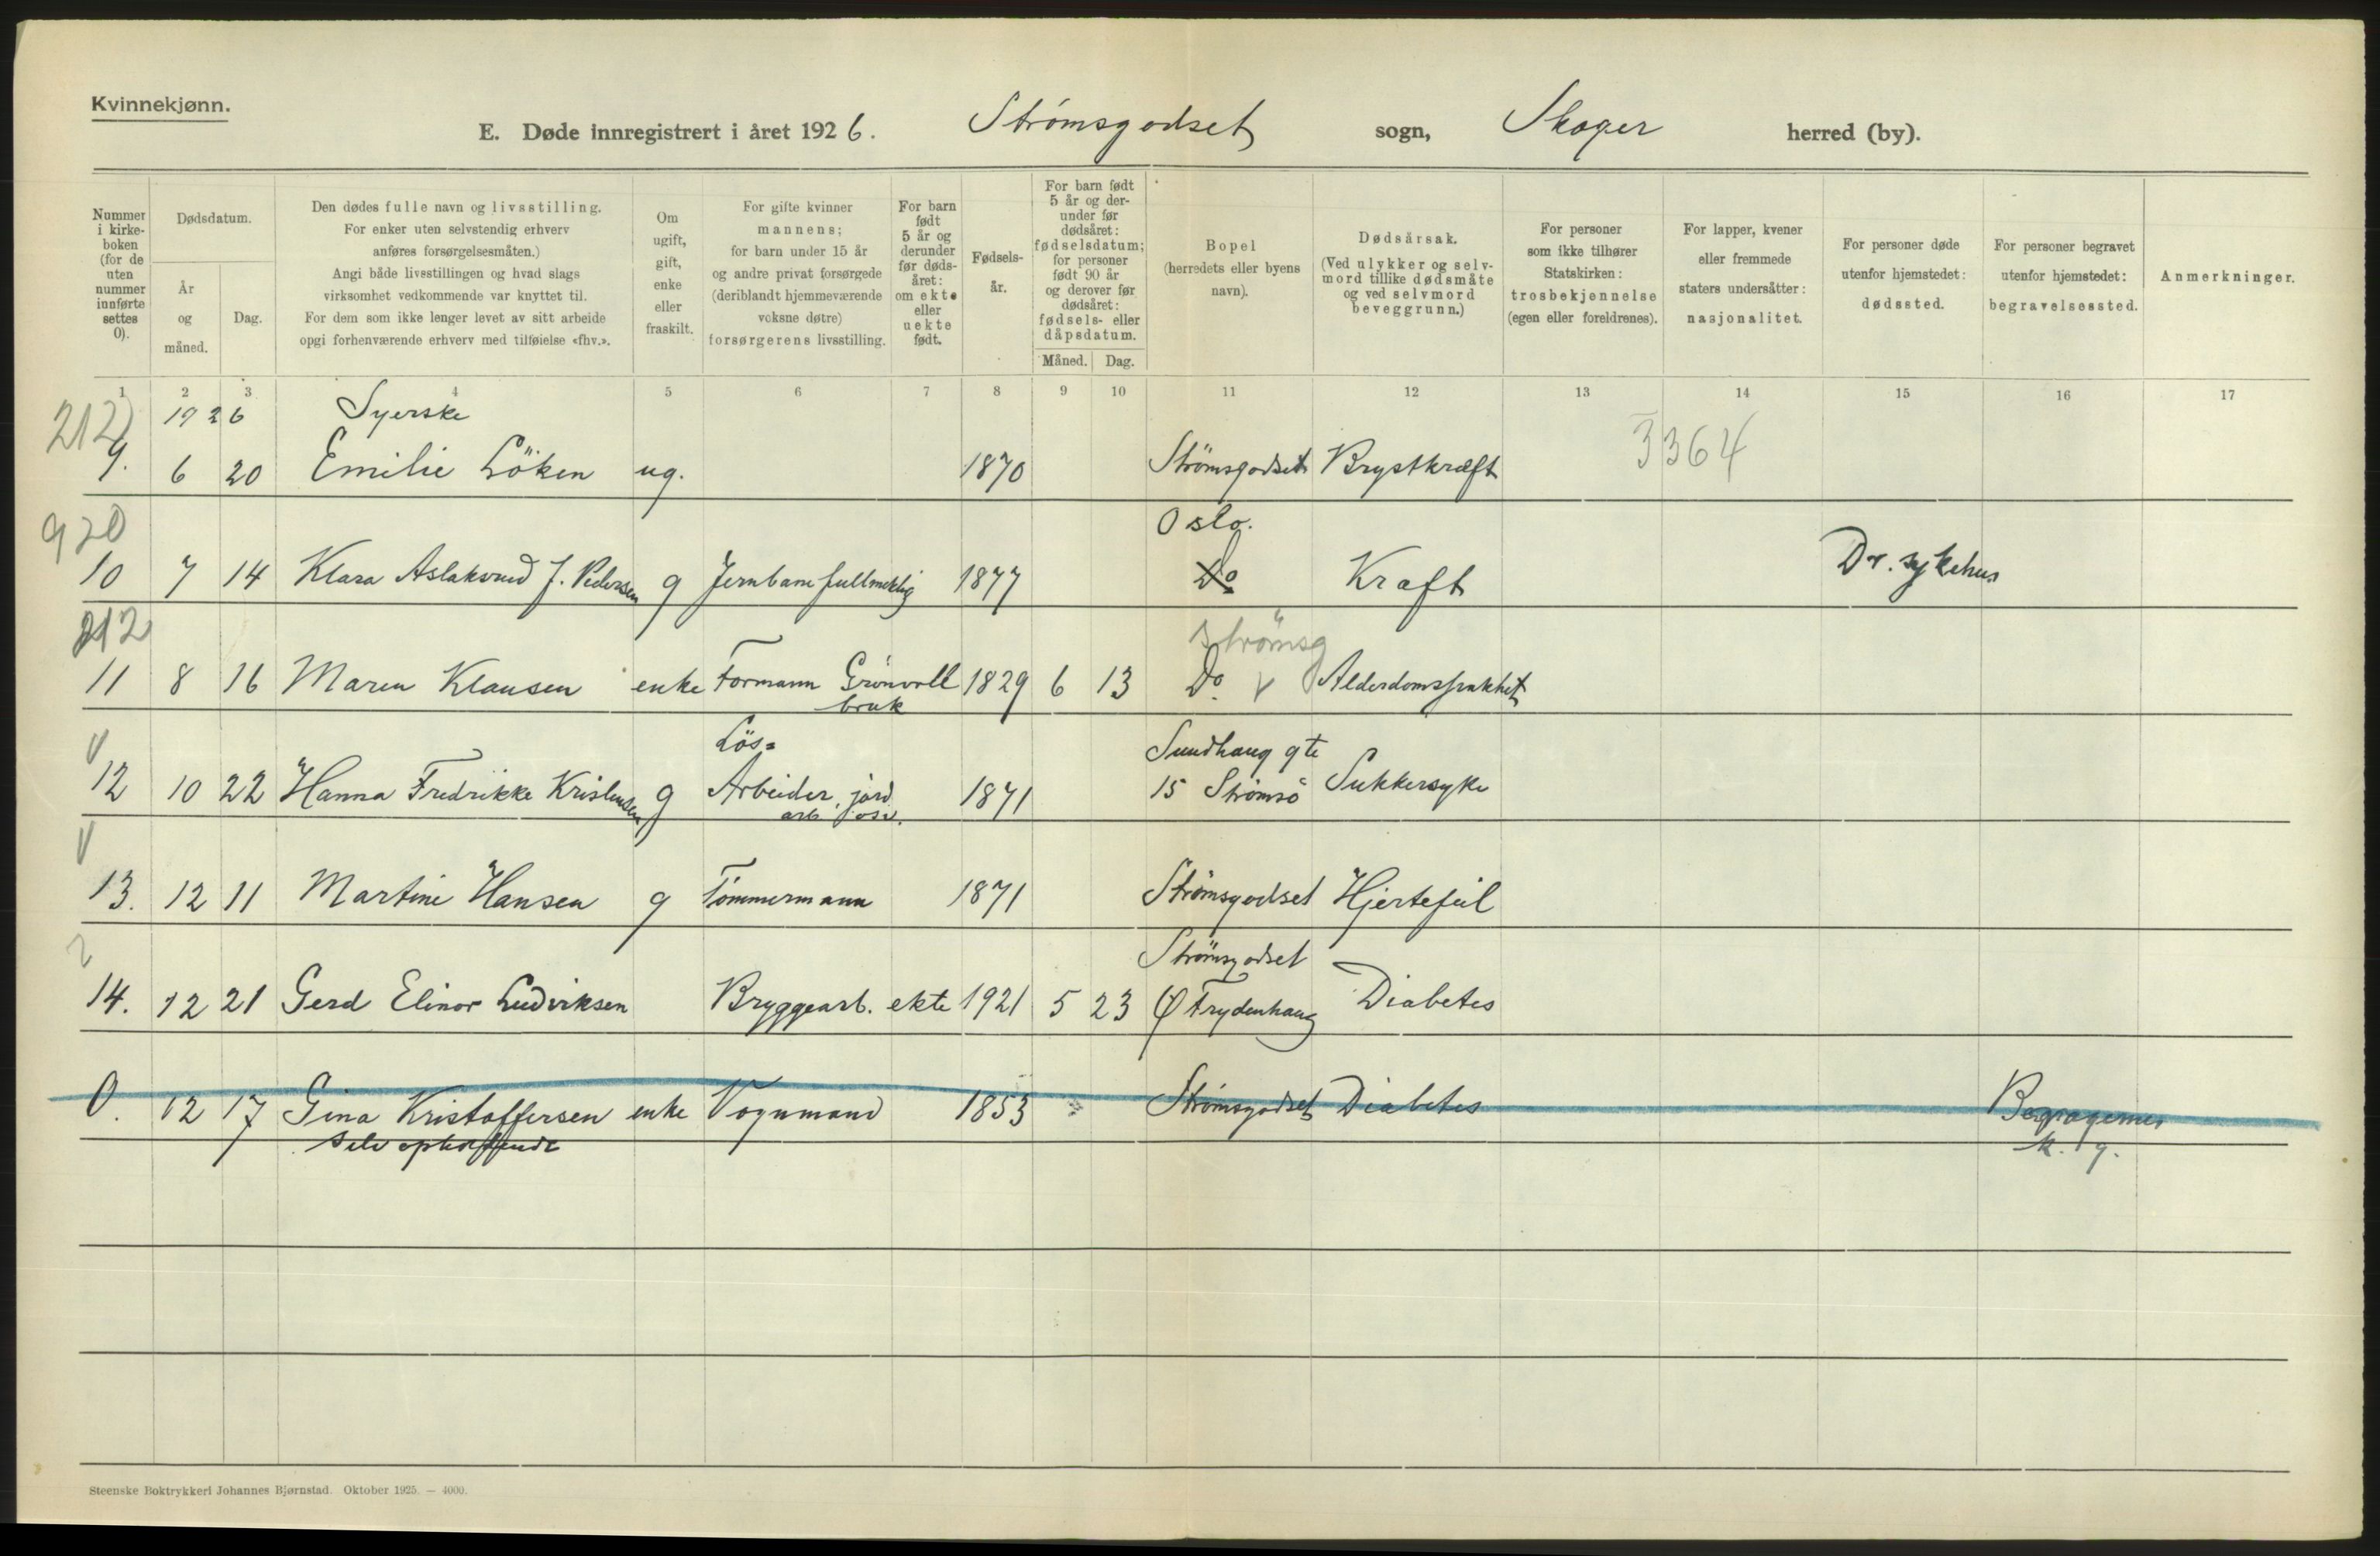 Kvinnekjønn.
E. Døde innregistrert i året 1926. Strømsgodset sogn, Skoger herred (by).
Nummer i kirke-boken (for de uten nummer innførte settes 0).
Dødsdatum.
År og måned.
Dag.
Den dødes fulle navn og livsstilling.
For enker uten selvstendig erhverv
anføres forsørgelsesmåten.)
Angi både livsstillingen og hvad slags
virksomhet vedkommende var knyttet til.
For dem som ikke lenger levet av sitt arbeide
opgi forhenværende erhverv med tilføielse «fhv.».
Om ugift, gift, enke eller fraskilt.
For gifte kvinner
mannens;
for barn under 15 år
og andre privat forsørgede
(deriblandt hjemmeværende
voksne døtre)
forsørgerens livsstilling.
For barn født 5 år og derunder før døds-året: om ekte eller uekte født.
Fødsels-år.
For barn født 5 år og der-under før dødsåret: fødselsdatum; for personer født 90 år og derover før dødsåret: fødsels- eller dåpsdatum.
Måned. Dag.
Bopel
(herredets eller byens
navn).
Dødsårsak.
(Ved ulykker og selv-
mord tillike dødsmåte
og ved selvmord
beveggrunn.)
For personer
som ikke tilhører
Statskirken:
trosbekjennelse
(egen eller foreldrenes).
For lapper, kvener
eller fremmede
staters undersåtter:
nasjonalitet.
For personer døde
utenfor hjemstedet:
dødssted.
For personer begravet
utenfor hjemstedet:
begravelsessted.
Anmerkninger.
1 2 3 4 5 6 7 8 9 10 11 12 13 14 15 16 17
212 1926 Syerske
9. 6 20 Emilie Löken ug. 1870 Strömsgodset Brystkræft 3364
920 Oslo.
10 7 14 Klara Aslaksrud f. Pedersen g Jernbanefullmektig 1877 Do Kraft Dr. sykehus
212 Strömsg
11 8 16 Maren Klausen enke Formann Grönvoll 1829 6 13 Do. V Alderdomssvakhet
bruk
V Lös= Sundhaug gte
12 10 22 Hanna Fredrikke Kristensen g Arbeider, jord 1871 15 Strömsö Sukkersyke
arb osv.
V
13. 12 11 Martine Hansen g Tömmermann 1871 Strömsgodset Hjertefeil
Strömsgodset
14. 12 21 Gerd Elinor Ludviksen Bryggearb. ekte 1921 5 23 Frydenhaug Diabetes
0. 12 17 Gina Kristoffersen enke Vognmand 1853 Strömsgodset Diabetes Bragernes
selv opholdende k. g.
Steenske Boktrykkeri Johannes Bjørnstad. Oktober 1925. — 4000.